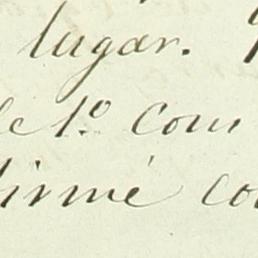 lugar.
le 1.º com
firmé co